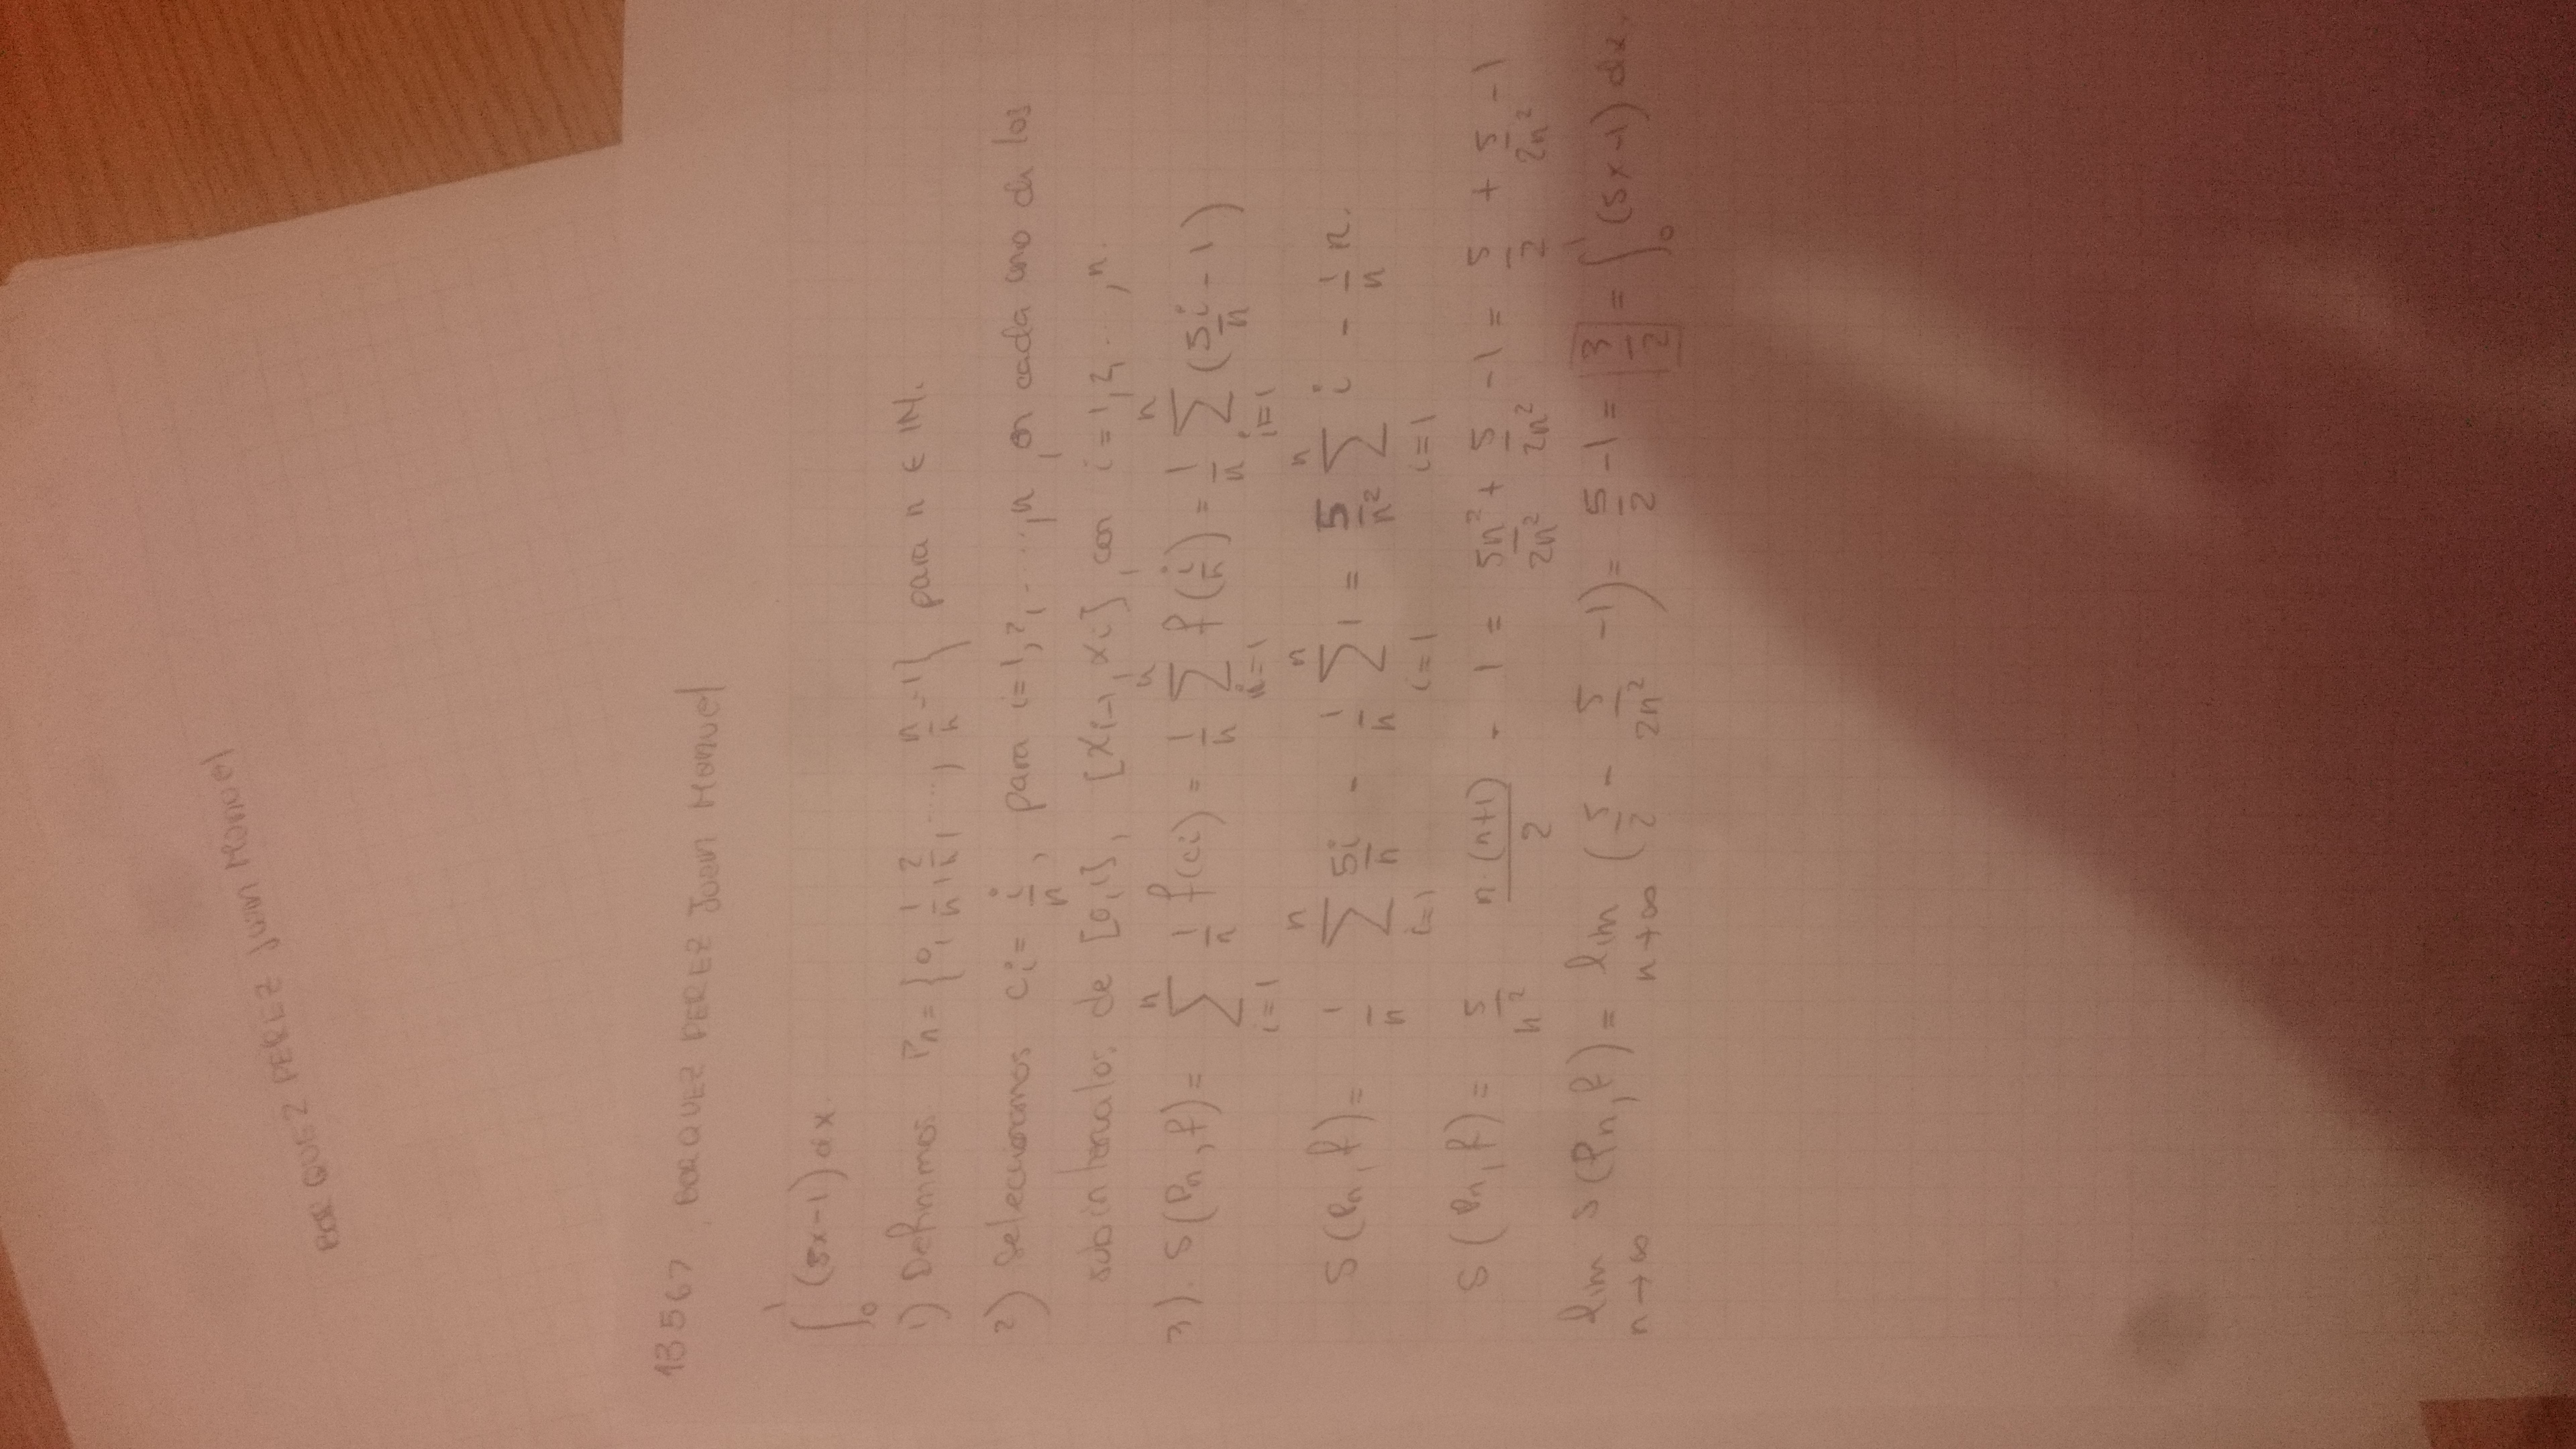 BORQUEZ PEREZ Juan Manuel
18567, BORQUEZ PEREZ Juan Manuel
∫₀¹ (5x-1) dx.
1) Definimos Pn = {0, 1/n, 2/n, ..., n/n = 1} para n ∈ IN.
2) Seleccionamos ci = i/n, para i=1,2,...,n, en cada uno de los
subintervalos de [0,1], [xi-1, xi], con i=1,2,...,n.
3). S(Pn, f) = Σ_{i=1}^{n} 1/n f(ci) = 1/n Σ_{i=1}^{n} f(i/n) = 1/n Σ_{i=1}^{n} (5i/n - 1)
S(Pn, f) = 1/n Σ_{i=1}^{n} 5i/n - 1/n Σ_{i=1}^{n} 1 = 5/n² Σ_{i=1}^{n} i - 1/n n.
S(Pn, f) = 5/n² n·(n+1)/2 - 1 = 5n²/2n² + 5/2n² - 1 = 5/2 + 5/2n² - 1
lim_{n→∞} S(Pn, f) = lim_{n→∞} (5/2 - 5/2n² - 1) = 5/2 - 1 = 3/2 = ∫₀¹ (5x-1) dx.